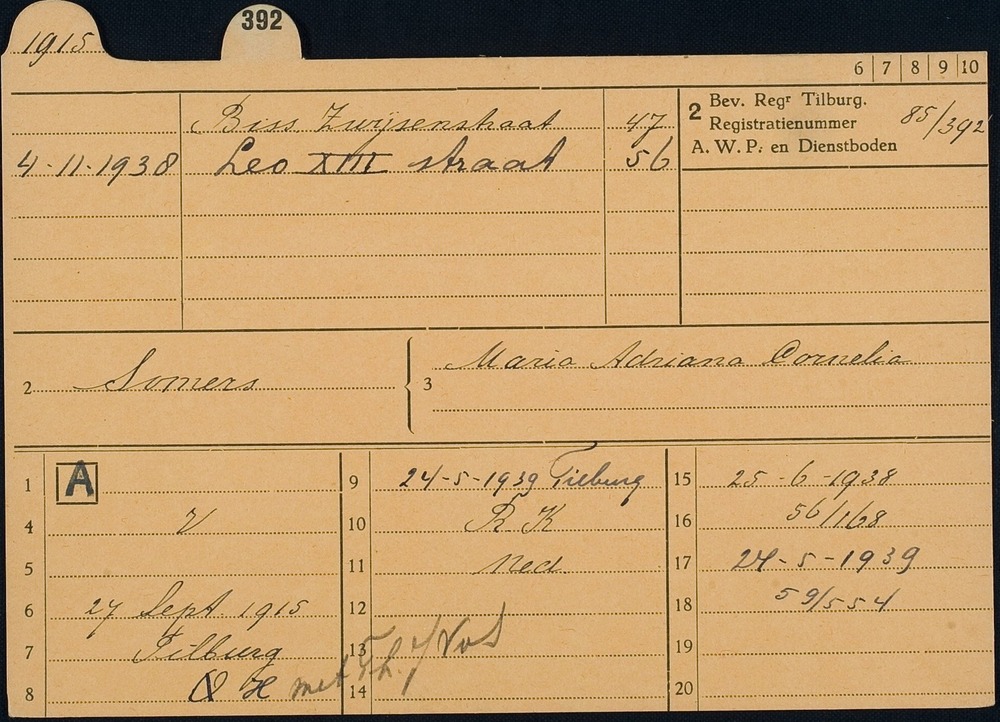 1915
392
6 7 8 9 10
Biss Zwijsenstraat 47
4-11-1938 Leo XIII straat 56
2 Bev. Regr Tilburg.
Registratienummer 85/392
A. W. P. en Dienstboden
2 Somers
3 Maria Adriana Cornelia
1 A
4 V
5
6 27 Sept. 1915
7 Tilburg
8 O H
9 24-5-1939 Tilburg
10 R K
11 Ned.
12
13
14
met Th. J. Vos
15 25-6-1938
16 56/168
17 24-5-1939
18 59/554
19
20